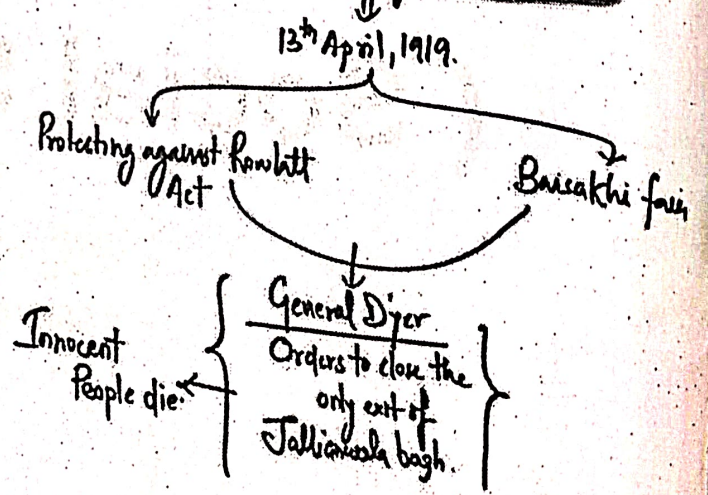 13th April, 1919.
Protecting against Rowlatt
Act
Baisakhi fair
General Dyer
Orders to close the
only exit of
Jallianwala bagh.
Innocent
People die.